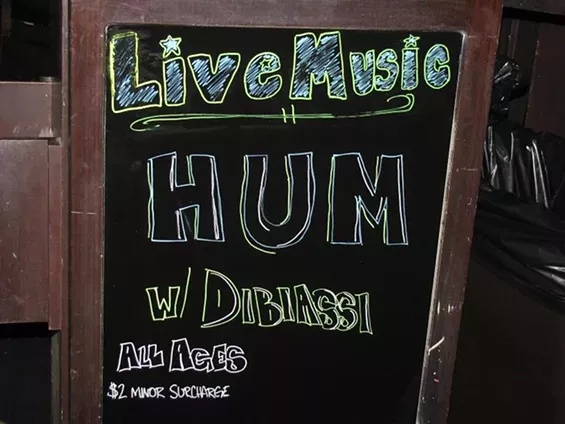 Live Music
HUM
w/ DIBIASSI
ALL AGES
$2 MINOR SURCHARGE